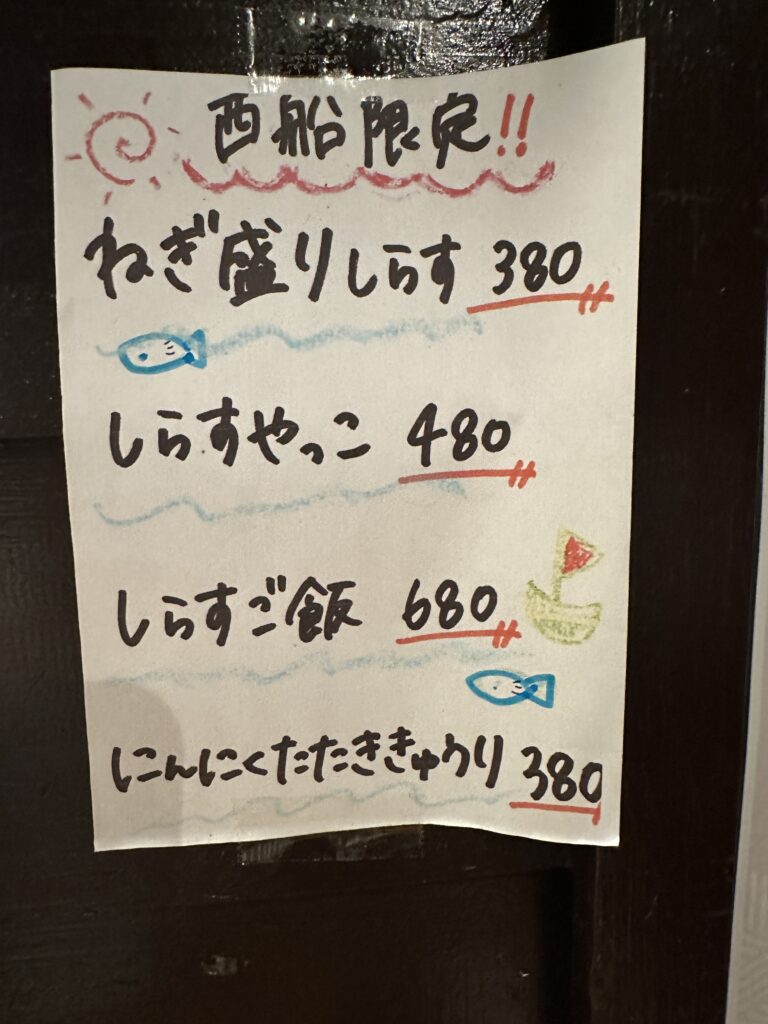 西船限定!!
ねぎ盛りしらす 380
しらすやっこ 480
しらすご飯 680
にんにくたたききゅうり 380